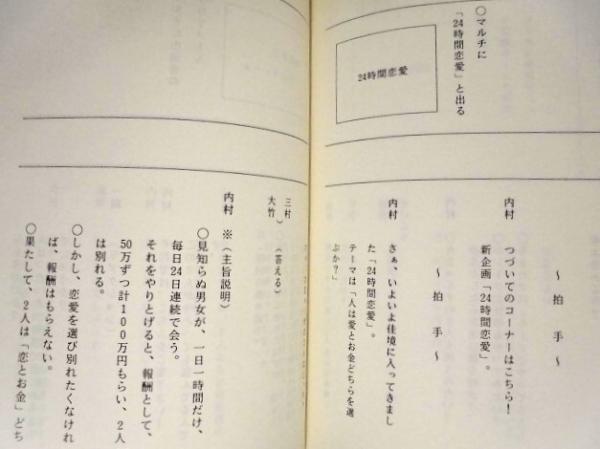 ○マルチに
「24時間恋愛」と出る
24時間恋愛
～拍手～
内村 つづいてのコーナーはこちら！
新企画「24時間恋愛」。
～拍手～
内村 さぁ、いよいよ佳境に入ってきまし
た「24時間恋愛」。
テーマは「人は愛とお金どちらを選
ぶか？」
三村）
大竹）（答える）
内村 ※（主旨説明）
○見知らぬ男女が、一日一時間だけ、
毎日24日連続で会う。
それをやりとげると、報酬として、
50万ずつ計100万円もらい、2人
は別れる。
○しかし、恋愛を選び別れたくなけれ
ば、報酬はもらえない。
○果たして、2人は「恋とお金」どち